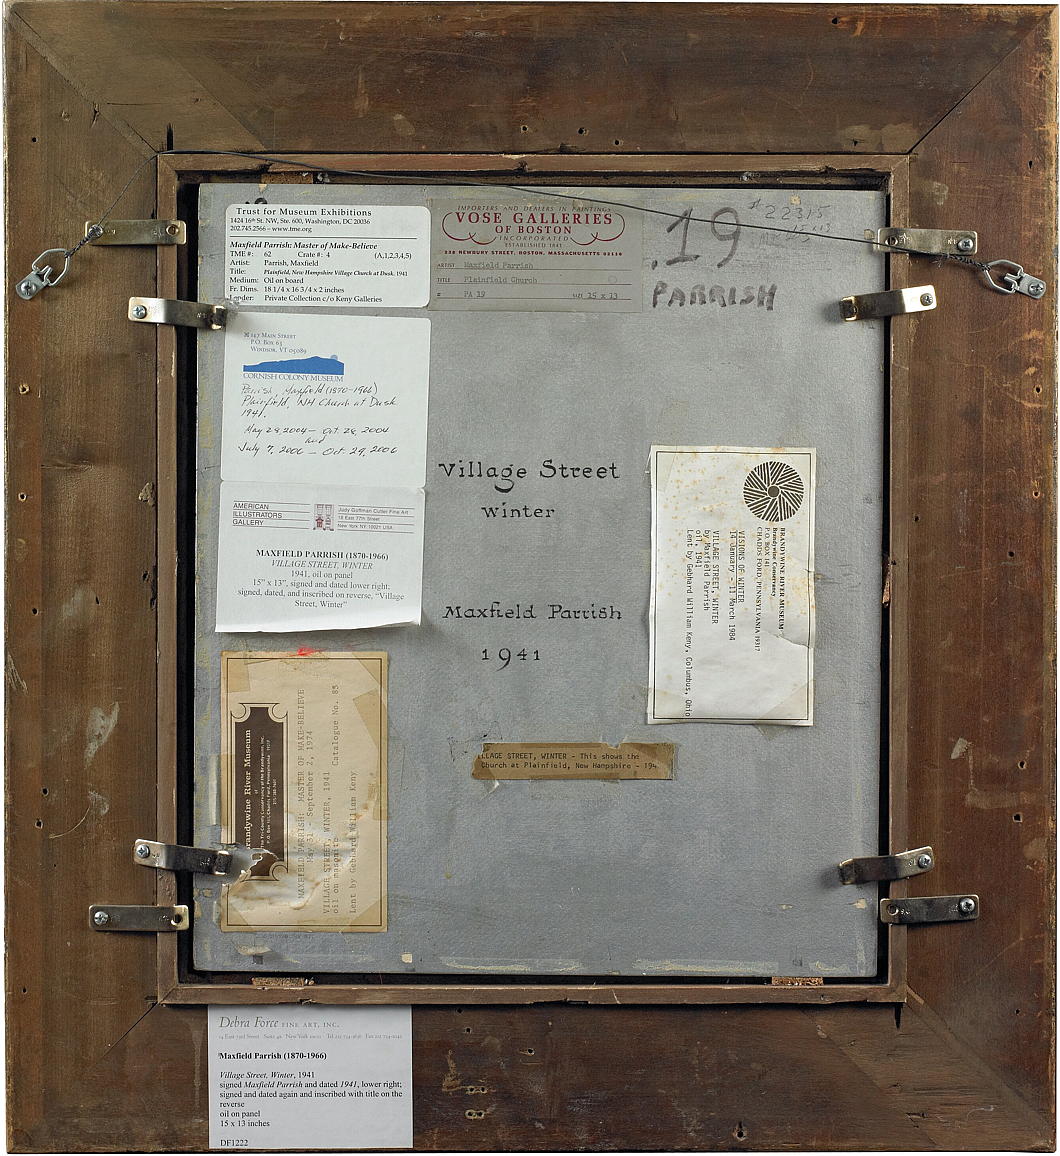 Trust for Museum Exhibitions
1424 16th St. NW, Ste. 600, Washington, DC 20036
202.745.2566 – www.tme.org
Maxfield Parrish: Master of Make-Believe
TME #: 62 Crate #: 4 (A,1,2,3,4,5)
Artist: Parrish, Maxfield
Title: Plainfield, New Hampshire Village Church at Dusk, 1941
Medium: Oil on board
Fr. Dims. 18 1/4 x 16 3/4 x 2 inches
Lender: Private Collection c/o Keny Galleries
IMPORTERS AND DEALERS IN PAINTINGS
VOSE GALLERIES
OF BOSTON
INCORPORATED
ESTABLISHED 1841
238 NEWBURY STREET, BOSTON, MASSACHUSETTS 02116
ARTIST Maxfield Parrish
TITLE Plainfield Church
# PA 19 SIZE 15 x 13
19
PARRISH
22315
147 MAIN STREET
P.O. BOX 63
WINDSOR, VT 05089
CORNISH COLONY MUSEUM
Parrish, Maxfield (1870-1966)
Plainfield, NH Church at Dusk
1941.
May 29, 2004 – Oct. 28, 2004
and
July 7, 2006 – Oct. 29, 2006
AMERICAN
ILLUSTRATORS
GALLERY
Judy Goffman Cutler Fine Art
18 East 77th Street
New York NY 10021 USA
MAXFIELD PARRISH (1870-1966)
VILLAGE STREET, WINTER
1941, oil on panel
15" x 13", signed and dated lower right;
signed, dated, and inscribed on reverse, "Village
Street, Winter"
Village Street
Winter
Maxfield Parrish
1941
BRANDYWINE RIVER MUSEUM
Brandywine Conservancy
P.O. BOX 141
CHADDS FORD, PENNSYLVANIA 19317
VISIONS OF WINTER
14 January - 11 March 1984
VILLAGE STREET, WINTER
by Maxfield Parrish
oil, 1941
Lent by Gebhard William Keny, Columbus, Ohio
randywine River Museum
of
MAXFIELD PARRISH: MASTER OF MAKE-BELIEVE
May 31 - September 2, 1974
VILLAGE STREET, WINTER, 1941 Catalogue No. 85
oil on masonite
Lent by Gebhard William Keny
LLAGE STREET, WINTER - This shows the
Church at Plainfield, New Hampshire - 194
Debra Force FINE ART, INC.
Maxfield Parrish (1870-1966)
Village Street, Winter, 1941
signed Maxfield Parrish and dated 1941, lower right;
signed and dated again and inscribed with title on the
reverse
oil on panel
15 x 13 inches
DF1222